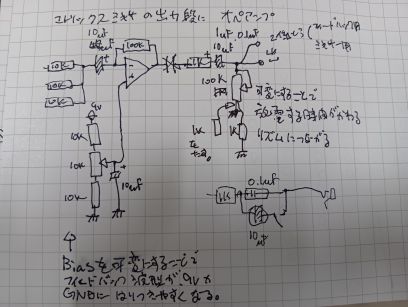 マトリックスミキサの出力段に オペアンプ
10uF
100K
10K
10K
10K
1K
1uF 0.1uF
100K
可変にすることで
放電する時間がかわる
リズムにつながる
1K
1K
9V
10K
10K
10K
10uF
1K
0.1uF
1K
10uF
Biasを可変にすることで
フィードバック波形が9Vか
GNDにはりつきやすくなる。